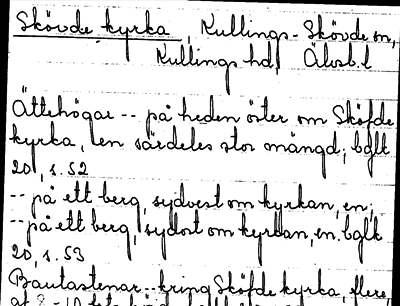 Skövde kyrka, Kullings-Skövde sn,
Kullings hd, Älvsb.l
Ättehögar -- på heden öster om Sköfde
kyrka, en särdeles stor mängd; bglt
20, s. 52
-- på ett berg, sydvest om kyrkan, en;
-- på ett berg, sydost om kyrkan, en. bglt
20, s. 53
Bautastenar -- kring Sköfde kyrka, flere,
af 8-10 fots